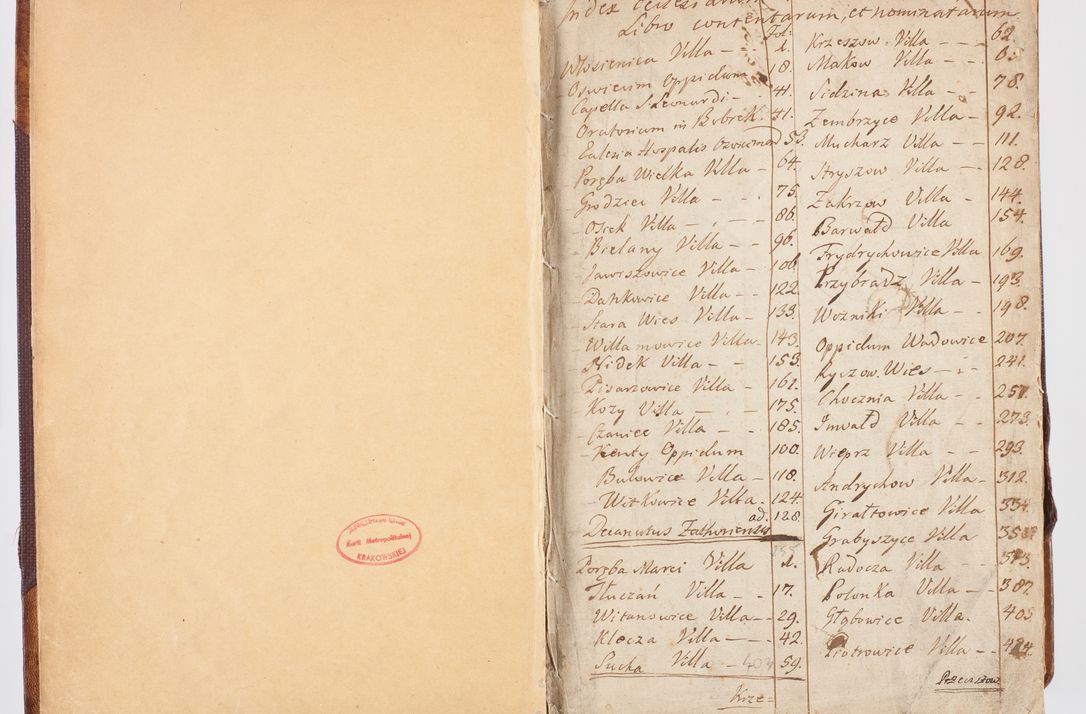 Kurii Metropolitalnej
KRAKOWSKIEJ
Index
Libro contentarum, et nominatarum
Fol:
Włosienica Villa - 1.
Oswiecim Oppidum 18
Capella S Leonardi - 41.
Oratorium in Bobrek. 41.
Hospalis 53.
Poręba Wielka Villa - 64.
Grodziec Villa - - 75.
Osiek Villa - - - 86.
Bielany Villa - - 96.
Jawiszowice Villa - 106.
Dankowice Villa - - 122.
Stara Wies Villa - 133.
Willamowice Villa - 143.
Nidek Villa - - 153.
Pisarzowice Villa - 161.
Kozy Villa - - - 175.
Czaniec Villa - - 185.
Kenty Oppidum 100.
Bulowice Villa - 118.
Witkowice Villa . 124.
ad. 128.
Decanatus Zathoriensis
Poręba Marci Villa 1.
Tłuczań Villa - - 17.
Witanowice Villa - - 29.
Klecza Villa - - - 42.
Sucha Villa - 59.
Krze=
Krzeszow Villa - - - 62.
Makow Villa - - . 65.
Sidzina Villa - 78.
Zembrzyce Villa - 92.
Mucharz Villa - - 111.
Stryszow Villa - - 128.
Zakrzow Villa - 144.
Barwałd Villa 154.
Frydrychowice Villa 169.
Przybradz Villa - 193.
Wozniki Villa - 198.
Oppidum Wadowice 207.
Ryczow Wies - - - 241.
Chocznia Villa - - 257.
Inwałd Villa - - 273.
Wieprz Villa - - 293.
Andrychow Villa - 312.
Girałtowice Villa 334.
Grabyszyce Villa
Radocza Villa - - 373.
Polonka Villa - - 387.
Głębowice Villa . 405.
Piotrowice Villa - - 424.
Przeciszow